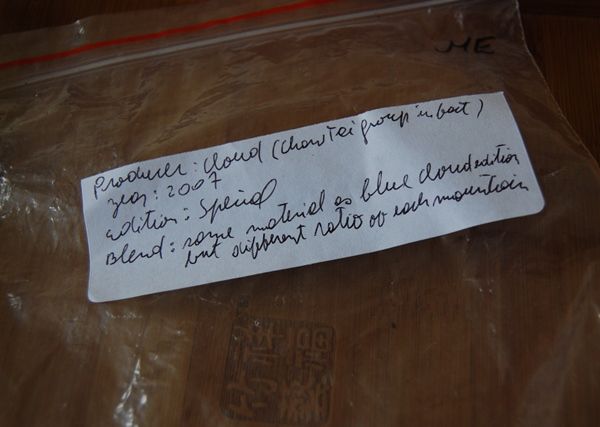 ME
Producer: Cloud (ChawTei group in fact)
year: 2007
Edition: Special
Blend: same material as blue cloud edition
but different ratio of each mountain